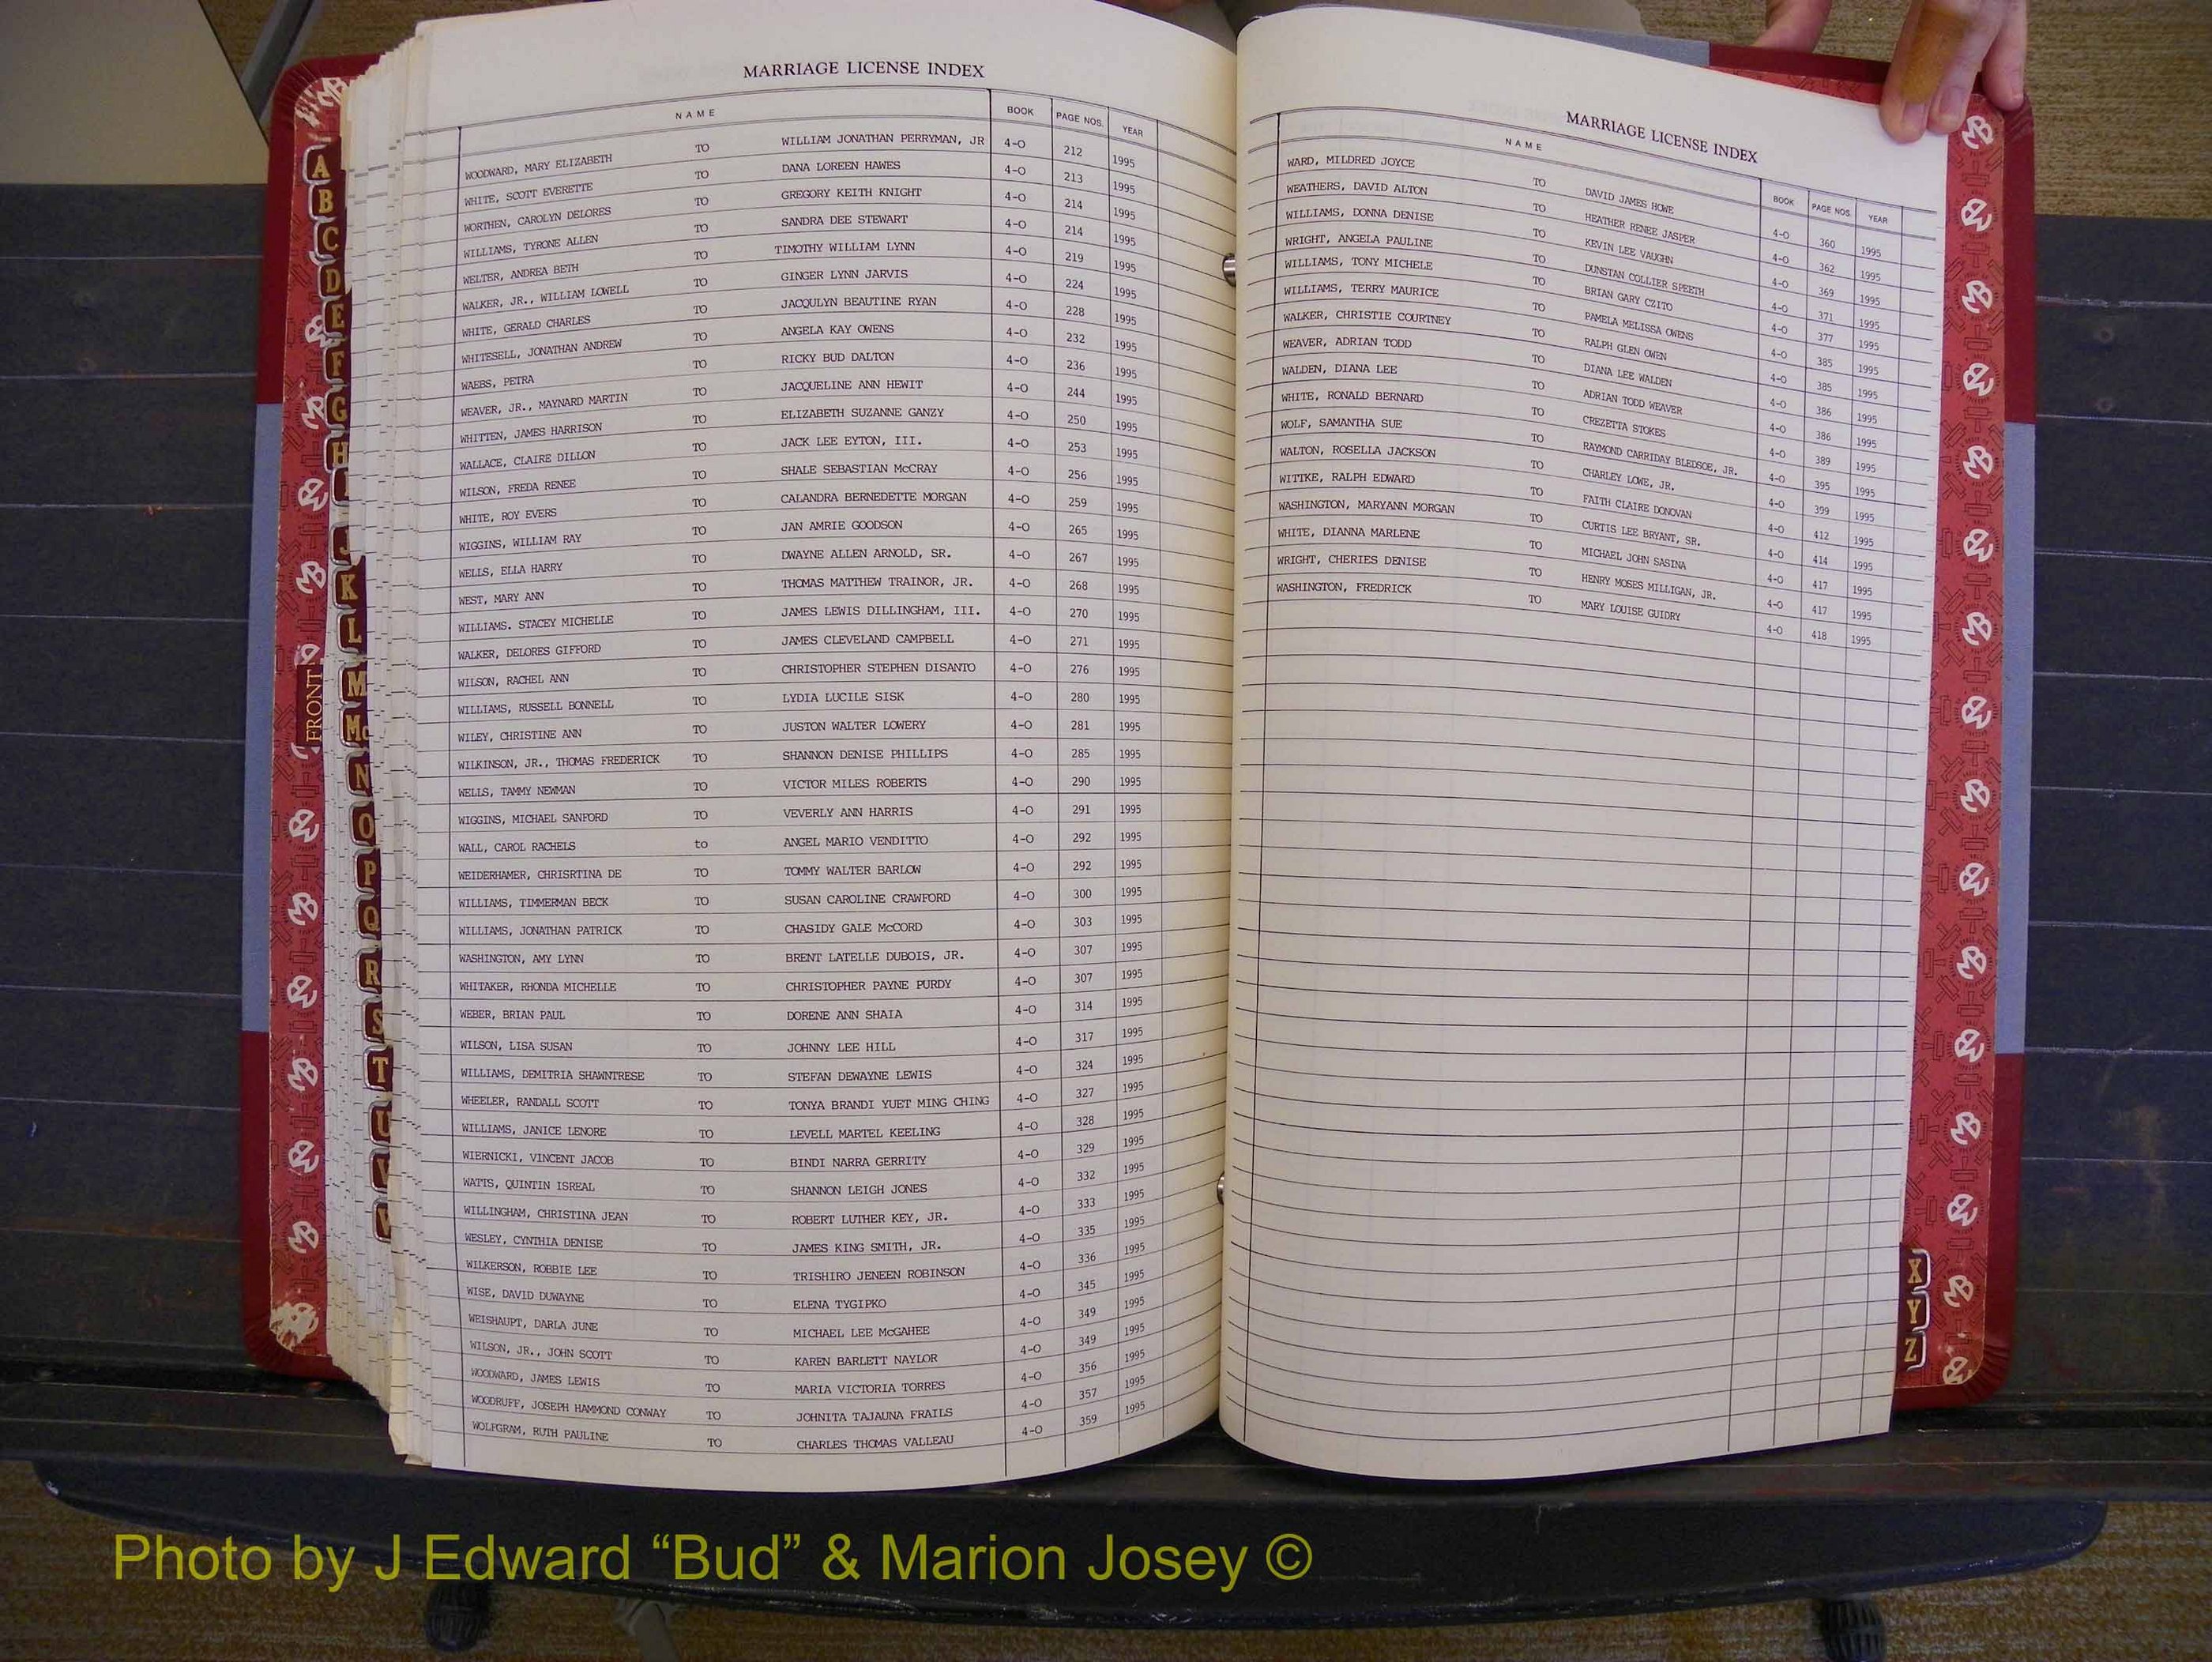 MARRIAGE LICENSE INDEX
NAME BOOK PAGE NOS. YEAR
WOODWARD, MARY ELIZABETH TO WILLIAM JONATHAN PERRYMAN, JR 4-O 212 1995
WHITE, SCOTT EVERETTE TO DANA LOREEN HAWES 4-O 213 1995
WORTHEN, CAROLYN DELORES TO GREGORY KEITH KNIGHT 4-O 214 1995
WILLIAMS, TYRONE ALLEN TO SANDRA DEE STEWART 4-O 214 1995
WELTER, ANDREA BETH TO TIMOTHY WILLIAM LYNN 4-O 219 1995
WALKER, JR., WILLIAM LOWELL TO GINGER LYNN JARVIS 4-O 224 1995
WHITE, GERALD CHARLES TO JACQULYN BEAUTINE RYAN 4-O 228 1995
WHITESELL, JONATHAN ANDREW TO ANGELA KAY OWENS 4-O 232 1995
WAEBS, PETRA TO RICKY BUD DALTON 4-O 236 1995
WEAVER, JR., MAYNARD MARTIN TO JACQUELINE ANN HEWIT 4-O 244 1995
WHITTEN, JAMES HARRISON TO ELIZABETH SUZANNE GANZY 4-O 250 1995
WALLACE, CLAIRE DILLON TO JACK LEE EYTON, III. 4-O 253 1995
WILSON, FREDA RENEE TO SHALE SEBASTIAN McCRAY 4-O 256 1995
WHITE, ROY EVERS TO CALANDRA BERNEDETTE MORGAN 4-O 259 1995
WIGGINS, WILLIAM RAY TO JAN AMRIE GOODSON 4-O 265 1995
WELLS, ELLA HARRY TO DWAYNE ALLEN ARNOLD, SR. 4-O 267 1995
WEST, MARY ANN TO THOMAS MATTHEW TRAINOR, JR. 4-O 268 1995
WILLIAMS. STACEY MICHELLE TO JAMES LEWIS DILLINGHAM, III. 4-O 270 1995
WALKER, DELORES GIFFORD TO JAMES CLEVELAND CAMPBELL 4-O 271 1995
WILSON, RACHEL ANN TO CHRISTOPHER STEPHEN DISANTO 4-O 276 1995
WILLIAMS, RUSSELL BONNELL TO LYDIA LUCILE SISK 4-O 280 1995
WILEY, CHRISTINE ANN TO JUSTON WALTER LOWERY 4-O 281 1995
WILKINSON, JR., THOMAS FREDERICK TO SHANNON DENISE PHILLIPS 4-O 285 1995
WELLS, TAMMY NEWMAN TO VICTOR MILES ROBERTS 4-O 290 1995
WIGGINS, MICHAEL SANFORD TO VEVERLY ANN HARRIS 4-O 291 1995
WALL, CAROL RACHELS to ANGEL MARIO VENDITTO 4-O 292 1995
WEIDERHAMER, CHRISRTINA DE TO TOMMY WALTER BARLOW 4-O 292 1995
WILLIAMS, TIMMERMAN BECK TO SUSAN CAROLINE CRAWFORD 4-O 300 1995
WILLIAMS, JONATHAN PATRICK TO CHASIDY GALE McCORD 4-O 303 1995
WASHINGTON, AMY LYNN TO BRENT LATELLE DUBOIS, JR. 4-O 307 1995
WHITAKER, RHONDA MICHELLE TO CHRISTOPHER PAYNE PURDY 4-O 307 1995
WEBER, BRIAN PAUL TO DORENE ANN SHAIA 4-O 314 1995
WILSON, LISA SUSAN TO JOHNNY LEE HILL 4-O 317 1995
WILLIAMS, DEMITRIA SHAWNTRESE TO STEFAN DEWAYNE LEWIS 4-O 324 1995
WHEELER, RANDALL SCOTT TO TONYA BRANDI YUET MING CHING 4-O 327 1995
WILLIAMS, JANICE LENORE TO LEVELL MARTEL KEELING 4-O 328 1995
WIERNICKI, VINCENT JACOB TO BINDI NARRA GERRITY 4-O 329 1995
WATTS, QUINTIN ISREAL TO SHANNON LEIGH JONES 4-O 332 1995
WILLINGHAM, CHRISTINA JEAN TO ROBERT LUTHER KEY, JR. 4-O 333 1995
WESLEY, CYNTHIA DENISE TO JAMES KING SMITH, JR. 4-O 335 1995
WILKERSON, ROBBIE LEE TO TRISHIRO JENEEN ROBINSON 4-O 336 1995
WISE, DAVID DUWAYNE TO ELENA TYGIPKO 4-O 345 1995
WEISHAUPT, DARLA JUNE TO MICHAEL LEE McGAHEE 4-O 349 1995
WILSON, JR., JOHN SCOTT TO KAREN BARLETT NAYLOR 4-O 349 1995
WOODWARD, JAMES LEWIS TO MARIA VICTORIA TORRES 4-O 356 1995
WOODRUFF, JOSEPH HAMMOND CONWAY TO JOHNITA TAJAUNA FRAILS 4-O 357 1995
WOLFGRAM, RUTH PAULINE TO CHARLES THOMAS VALLEAU 4-O 359 1995
MARRIAGE LICENSE INDEX
NAME BOOK PAGE NOS. YEAR
WARD, MILDRED JOYCE TO DAVID JAMES HOWE 4-O 360 1995
WEATHERS, DAVID ALTON TO HEATHER RENEE JASPER 4-O 362 1995
WILLIAMS, DONNA DENISE TO KEVIN LEE VAUGHN 4-O 369 1995
WRIGHT, ANGELA PAULINE TO DUNSTAN COLLIER SPEETH 4-O 371 1995
WILLIAMS, TONY MICHELE TO BRIAN GARY CZITO 4-O 377 1995
WILLIAMS, TERRY MAURICE TO PAMELA MELISSA OWENS 4-O 385 1995
WALKER, CHRISTIE COURTNEY TO RALPH GLEN OWEN 4-O 385 1995
WEAVER, ADRIAN TODD TO DIANA LEE WALDEN 4-O 386 1995
WALDEN, DIANA LEE TO ADRIAN TODD WEAVER 4-O 386 1995
WHITE, RONALD BERNARD TO CREZETTA STOKES 4-O 389 1995
WOLF, SAMANTHA SUE TO RAYMOND CARRIDAY BLEDSOE, JR. 4-O 395 1995
WALTON, ROSELLA JACKSON TO CHARLEY LOWE, JR. 4-O 399 1995
WITTKE, RALPH EDWARD TO FAITH CLAIRE DONOVAN 4-O 412 1995
WASHINGTON, MARYANN MORGAN TO CURTIS LEE BRYANT, SR. 4-O 414 1995
WHITE, DIANNA MARLENE TO MICHAEL JOHN SASINA 4-O 417 1995
WRIGHT, CHERIES DENISE TO HENRY MOSES MILLIGAN, JR. 4-O 417 1995
WASHINGTON, FREDRICK TO MARY LOUISE GUIDRY 4-O 418 1995
A
B
C
D
E
F
G
H
I
J
K
L
M
Mc
N
O
P
Q
R
S
T
U
V
W
FRONT
X
Y
Z
Photo by J Edward “Bud” & Marion Josey ©